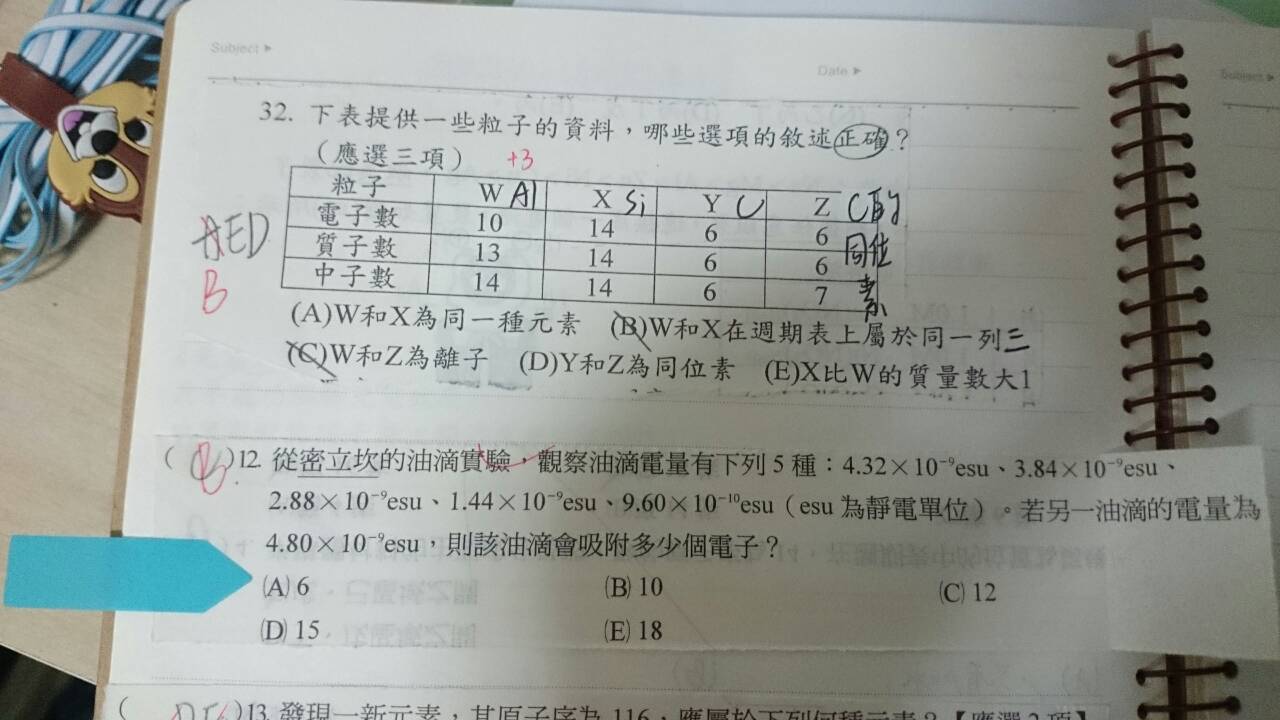 Subject ▶
Date ▶
Subject ▶
32. 下表提供一些粒子的資料，哪些選項的敘述正確？
（應選三項） +3
粒子 W Al X Si Y C Z C的
電子數 10 14 6 6 同位
質子數 13 14 6 6 素
中子數 14 14 6 7
AED
B
(A)W和X為同一種元素 (B)W和X在週期表上屬於同一列 三
(C)W和Z為離子 (D)Y和Z為同位素 (E)X比W的質量數大1
( B )12. 從密立坎的油滴實驗，觀察油滴電量有下列 5 種：4.32×10⁻⁹esu、3.84×10⁻⁹esu、
2.88×10⁻⁹esu、1.44×10⁻⁹esu、9.60×10⁻¹⁰esu（esu 為靜電單位）。若另一油滴的電量為
4.80×10⁻⁹esu，則該油滴會吸附多少個電子？
(A) 6 (B) 10 (C) 12
(D) 15 (E) 18
( )13. 發現一新元素，其原子序為 116，應屬於下列何種元素？【應選 2 項】